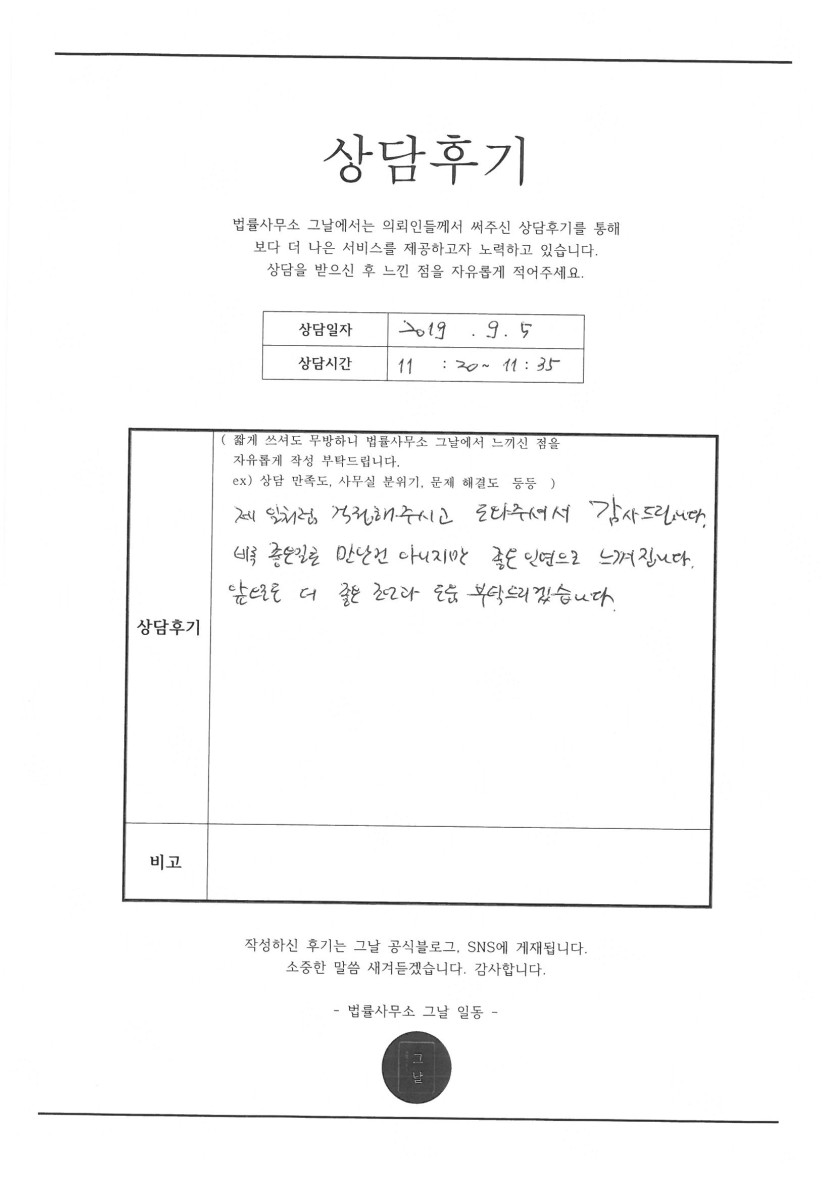 상담후기
법률사무소 그날에서는 의뢰인들께서 써주신 상담후기를 통해
보다 더 나은 서비스를 제공하고자 노력하고 있습니다.
상담을 받으신 후 느낀 점을 자유롭게 적어주세요.
상담일자 2019 . 9. 5
상담시간 11 : 20~ 11 : 35
( 짧게 쓰셔도 무방하니 법률사무소 그날에서 느끼신 점을
자유롭게 작성 부탁드립니다.
ex) 상담 만족도, 사무실 분위기, 문제 해결도 등등 )
제 일처럼 걱정해주시고 도와주셔서 감사드립니다.
비록 좋은일로 만난건 아니지만 좋은 인연으로 느껴집니다.
앞으로도 더 좋은 조언과 도움 부탁드리겠습니다.
상담후기
비고
작성하신 후기는 그날 공식블로그, SNS에 게재됩니다.
소중한 말씀 새겨듣겠습니다. 감사합니다.
- 법률사무소 그날 일동 -
그
날